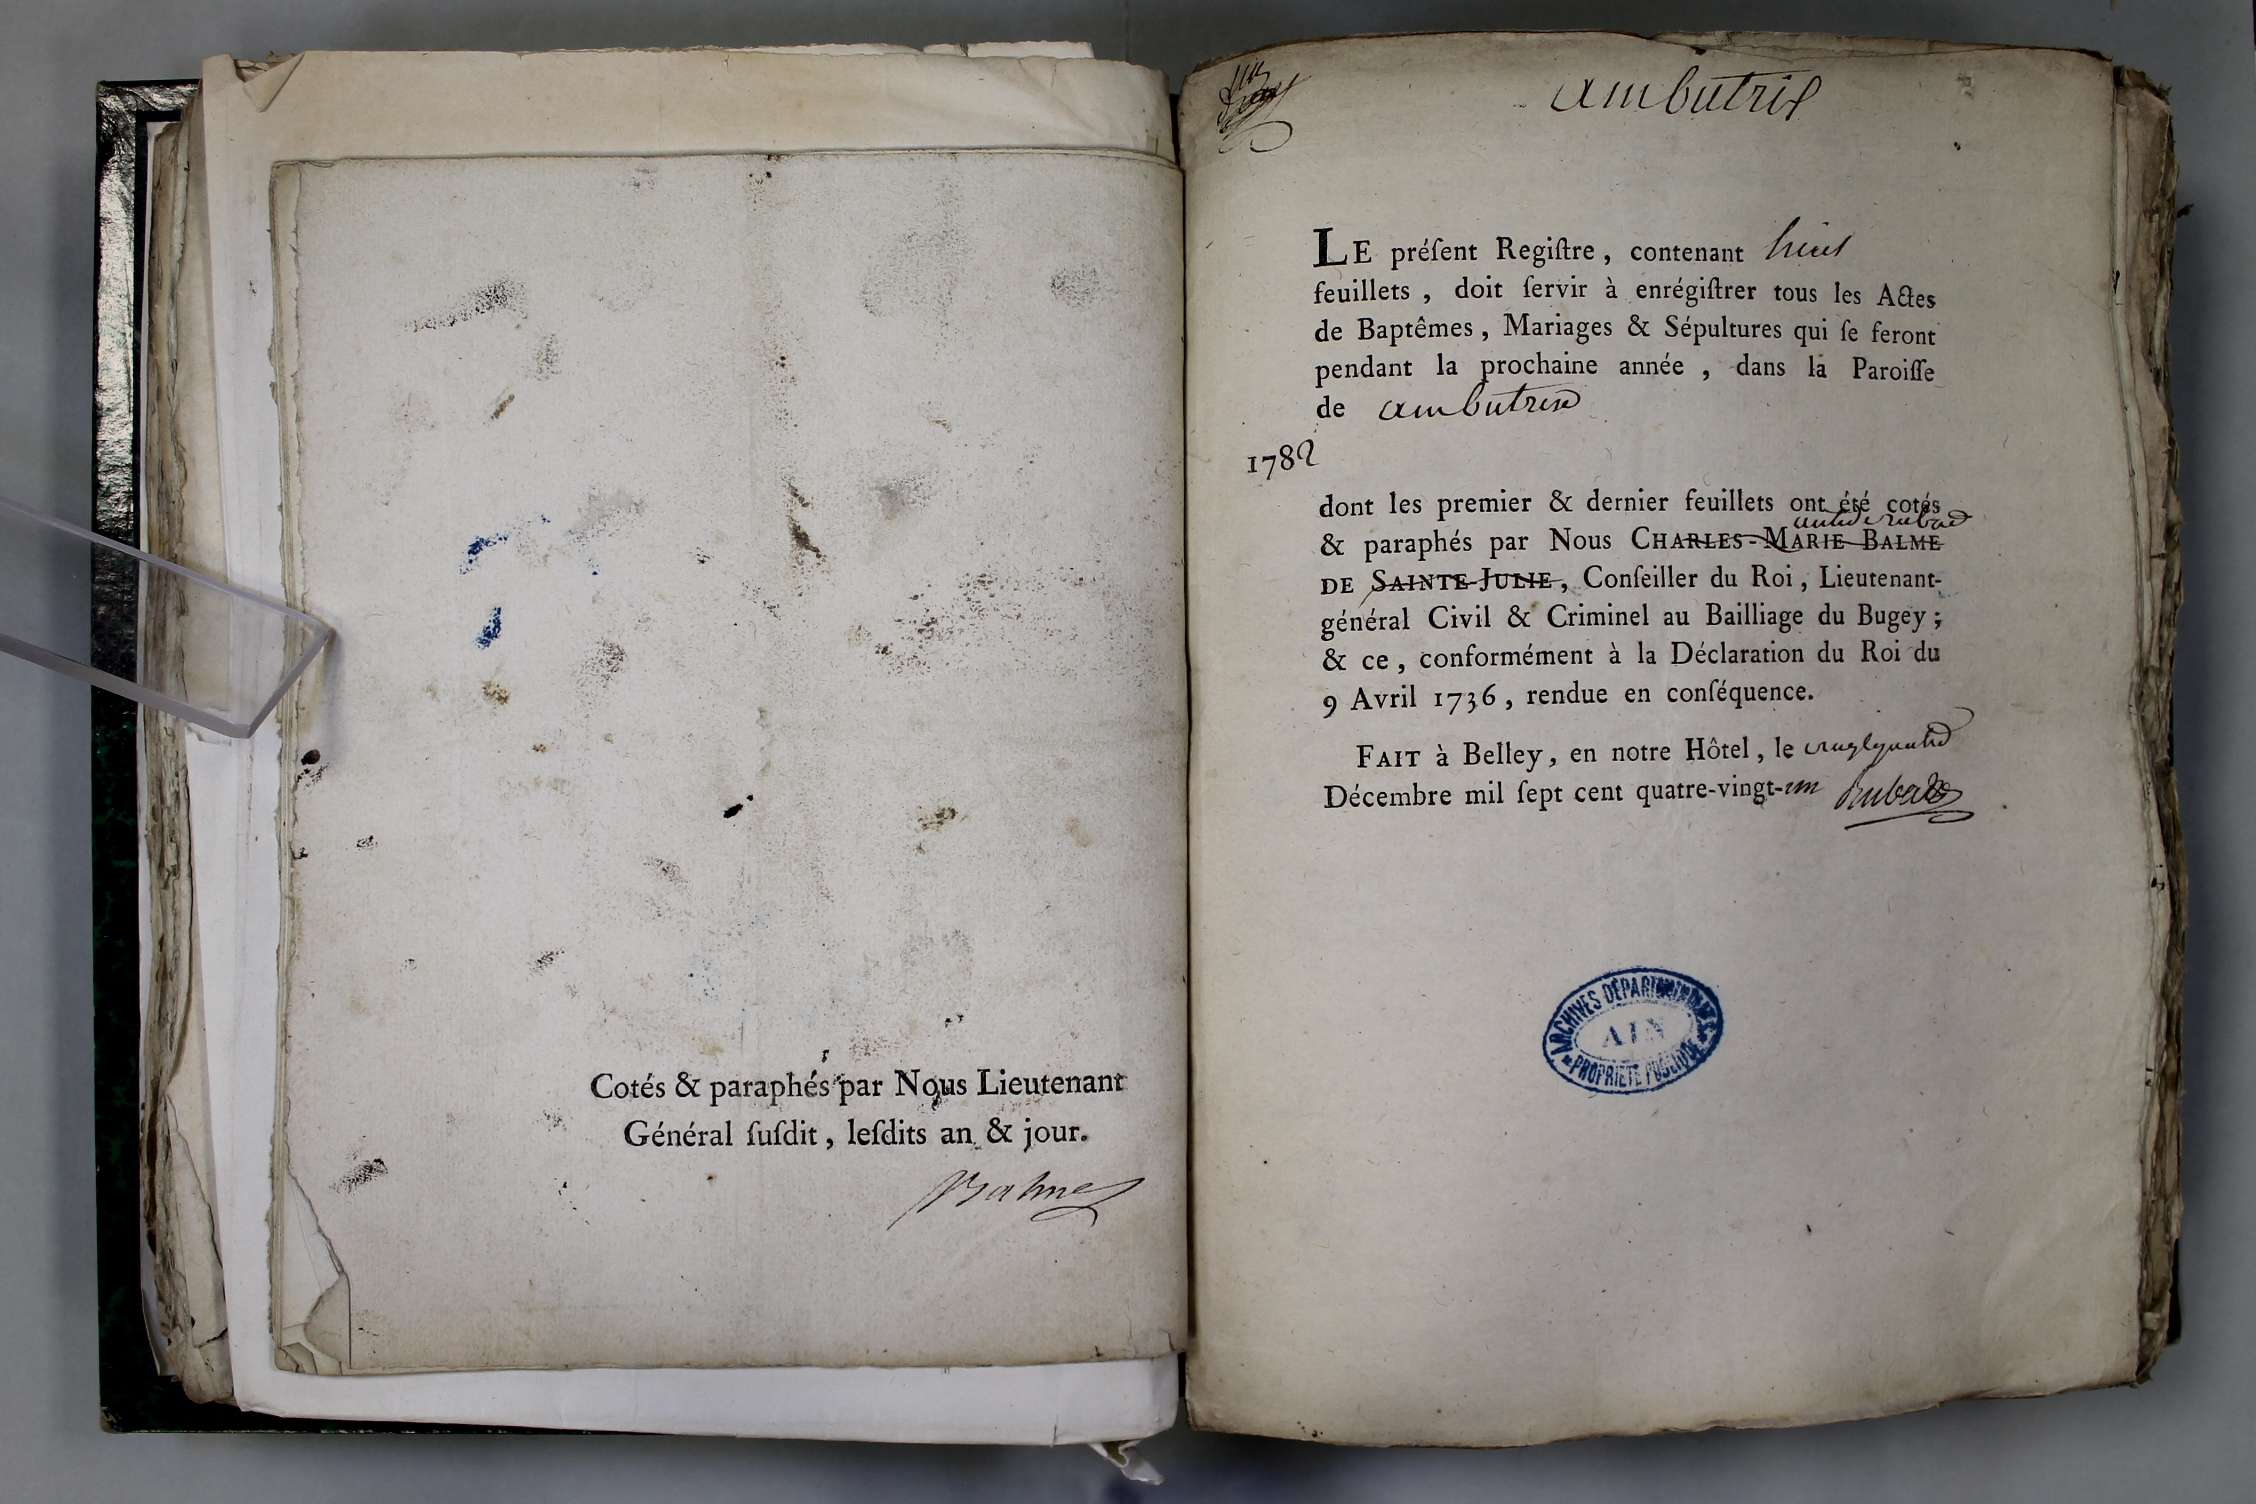 Cotés & paraphés par Nous Lieutenant
Général ſuſdit, leſdits an & jour.
Balme
ambutrix
LE préſent Regiſtre, contenant huit
feuillets, doit ſervir à enrégiſtrer tous les Actes
de Baptêmes, Mariages & Sépultures qui ſe feront
pendant la prochaine année, dans la Paroiſſe
de ambutrix
1782
dont les premier & dernier feuillets ont été cotés
& paraphés par Nous CHARLES-MARIE BALME
DE SAINTE-JULIE, Conſeiller du Roi, Lieutenant-
général Civil & Criminel au Bailliage du Bugey;
& ce, conformément à la Déclaration du Roi du
9 Avril 1736, rendue en conſéquence.
FAIT à Belley, en notre Hôtel, le
Décembre mil ſept cent quatre-vingt-un Rubat
ARCHIVES DÉPARTEMENTALES
AIN
PROPRIÉTÉ PUBLIQUE